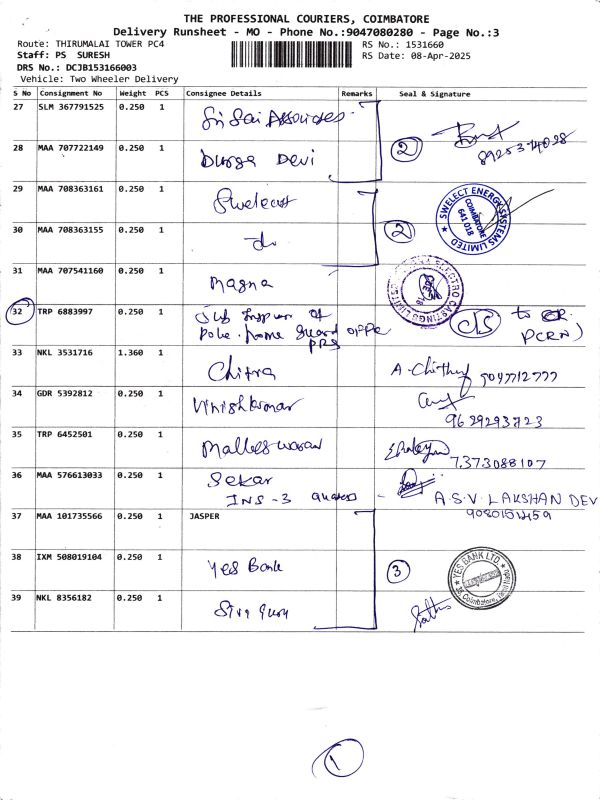 THE PROFESSIONAL COURIERS, COIMBATORE
Delivery Runsheet - MO - Phone No.:9047080280 - Page No.:3
Route: THIRUMALAI TOWER PC4 RS No.: 1531660
Staff: PS SURESH RS Date: 08-Apr-2025
DRS No.: DCJB153166003
Vehicle: Two Wheeler Delivery
S No Consignment No Weight PCS Consignee Details Remarks Seal & Signature
27 SLM 367791525 0.250 1 Sri Sai Associates
28 MAA 707722149 0.250 1 Durga Devi 2
29 MAA 708363161 0.250 1 Swelect
SWELECT ENERGY SYSTEMS LIMITED
COIMBATORE
641 018
30 MAA 708363155 0.250 1 do 2
31 MAA 707541160 0.250 1 Magna
MAGNA ELECTRO CASTINGS LIMITED
32 TRP 6883997 0.250 1 Sub of
home guard office
PRS
to
PCRN)
33 NKL 3531716 1.360 1 Chitra A. Chithra
34 GDR 5392812 0.250 1 Vinishkumar
9629293723
35 TRP 6452501 0.250 1 Malleswaran
7373088107
36 MAA 576613033 0.250 1 Sekar
INS-3 - A.S.V. LAKSHAN DEV
37 MAA 101735566 0.250 1 JASPER
38 IXM 508019104 0.250 1 Yes Bank 3
YES BANK LTD
Coimbatore
39 NKL 8356182 0.250 1 Siva Guru
1